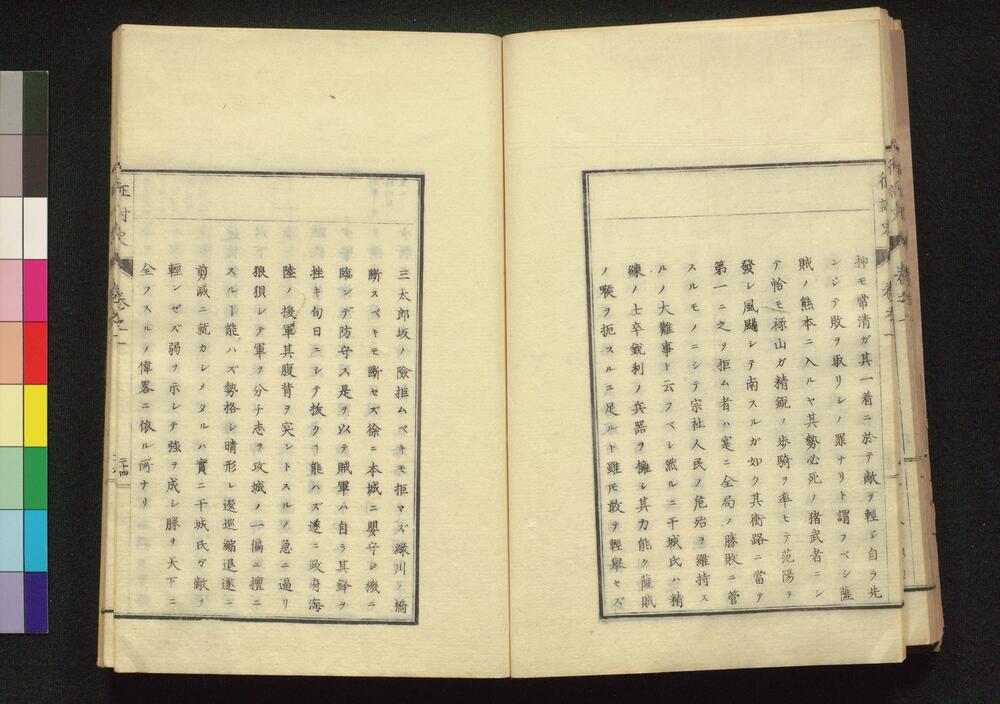 抑モ常清ガ其一着ニ於テ敵ヲ輕ジ自ラ先
ンジテ敗ヲ取リシノ罪ナリト謂フベシ薩
賊ノ熊本ニ入ルヤ其勢必死ノ猪武者ニシ
テ恰モ禄山ガ精鋭ノ歩騎ヲ率ヒテ范陽ヲ
發シ風颺シテ南スルガ如ク其衝路ニ當テ
第一ニ之ヲ拒ム者ハ寔ニ全局ノ勝敗ニ管
スルモノニシテ宗社人民ノ危殆ヲ維持ス
ルノ大難事ト云フベシ然ルニ干城氏ハ精
練ノ士卒鋭利ノ兵器ヲ擁シ其力能ク薩賊
ノ喉ヲ扼スルニ足ルト雖モ敢テ輕舉セズ
三太郎坂ノ險拒ムベキモ拒マズ緑川ノ橋
斷スベキモ斷セズ徐ニ本城ニ嬰守シ機ニ
臨ンデ防守ス是ヲ以テ賊軍ハ自ラ其鋒ヲ
挫キ旬日ニシテ拔クヿ能ハズ遂ニ政府海
陸ノ援軍其腹背ヲ突ントスルノ急ニ逼リ
狼狽シテ軍ヲ分チ志ヲ攻城ノ一偏ニ擅ニ
スルヿ能ハズ勢格シ晴形レ逡巡縮退遂ニ
剪滅ニ就カシメタルハ實ニ干城氏ガ敵ヲ
輕ンゼズ弱ヲ示シテ強ヲ成シ勝ヲ天下ニ
全フスルノ偉畧ニ依ル所ナリ
征討史
卷之一